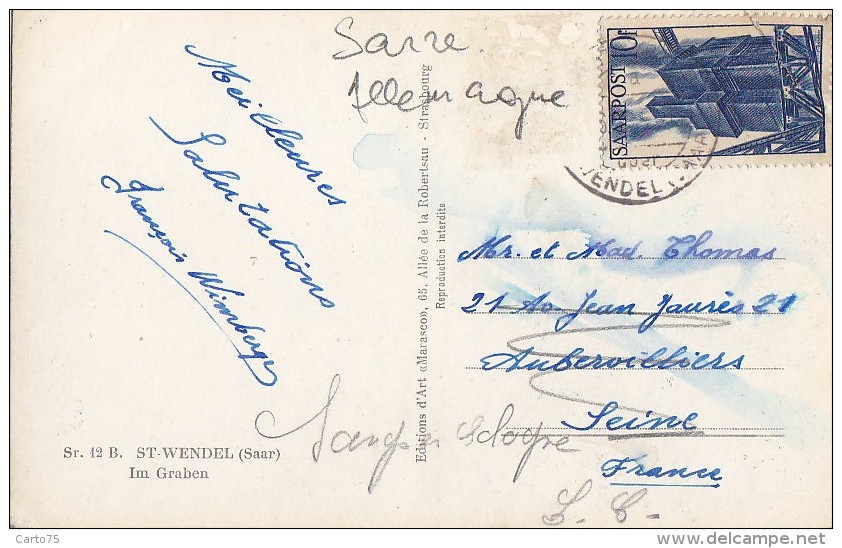 Sarre
Allemagne
SAARPOST
WENDEL
Meilleures
Salutations
François Wimberger
Editions d'Art «Marasco», 65, Allée de la Robertsau - Strasbourg
Reproduction interdite
Mr. et Mad. Thomas
21 Av Jean Jaurès 21
Aubervilliers
Seine
France
Sr. 12 B. ST-WENDEL (Saar)
Im Graben
Carto75
delcampe.net